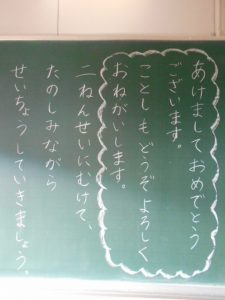 あけましておめでとう
ございます。
ことしもどうぞよろしく
おねがいします。
二ねんせいにむけて、
たのしみながら
せいちょうしていきましょう。